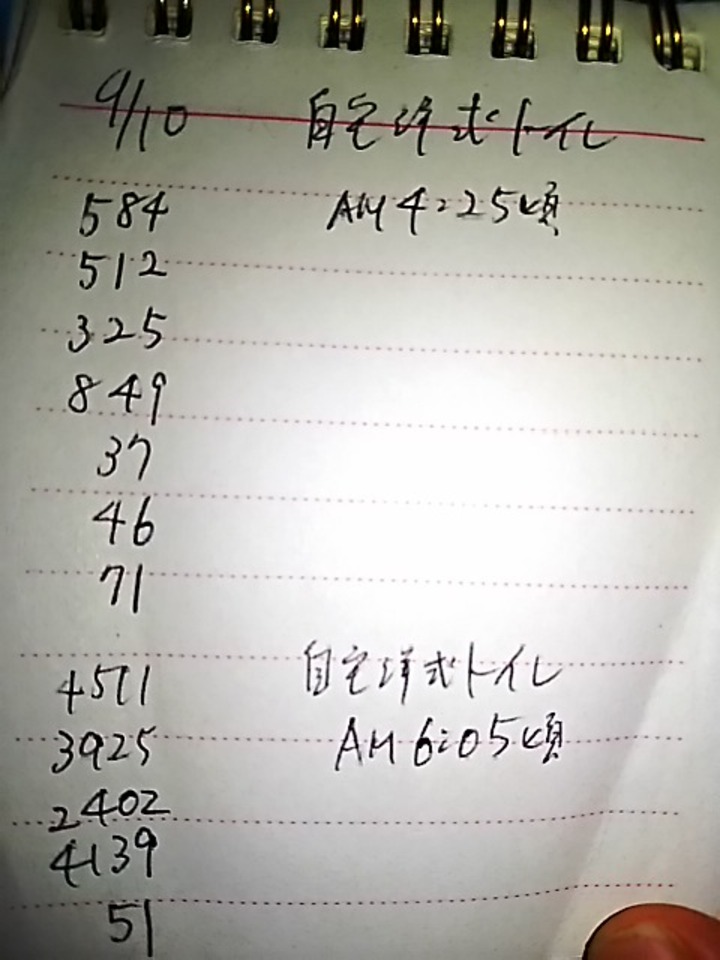 9/10 自宅洋式トイレ
584 AM4:25頃
512
325
849
37
46
71
4571 自宅洋式トイレ
3925 AM6:05頃
2402
4139
51